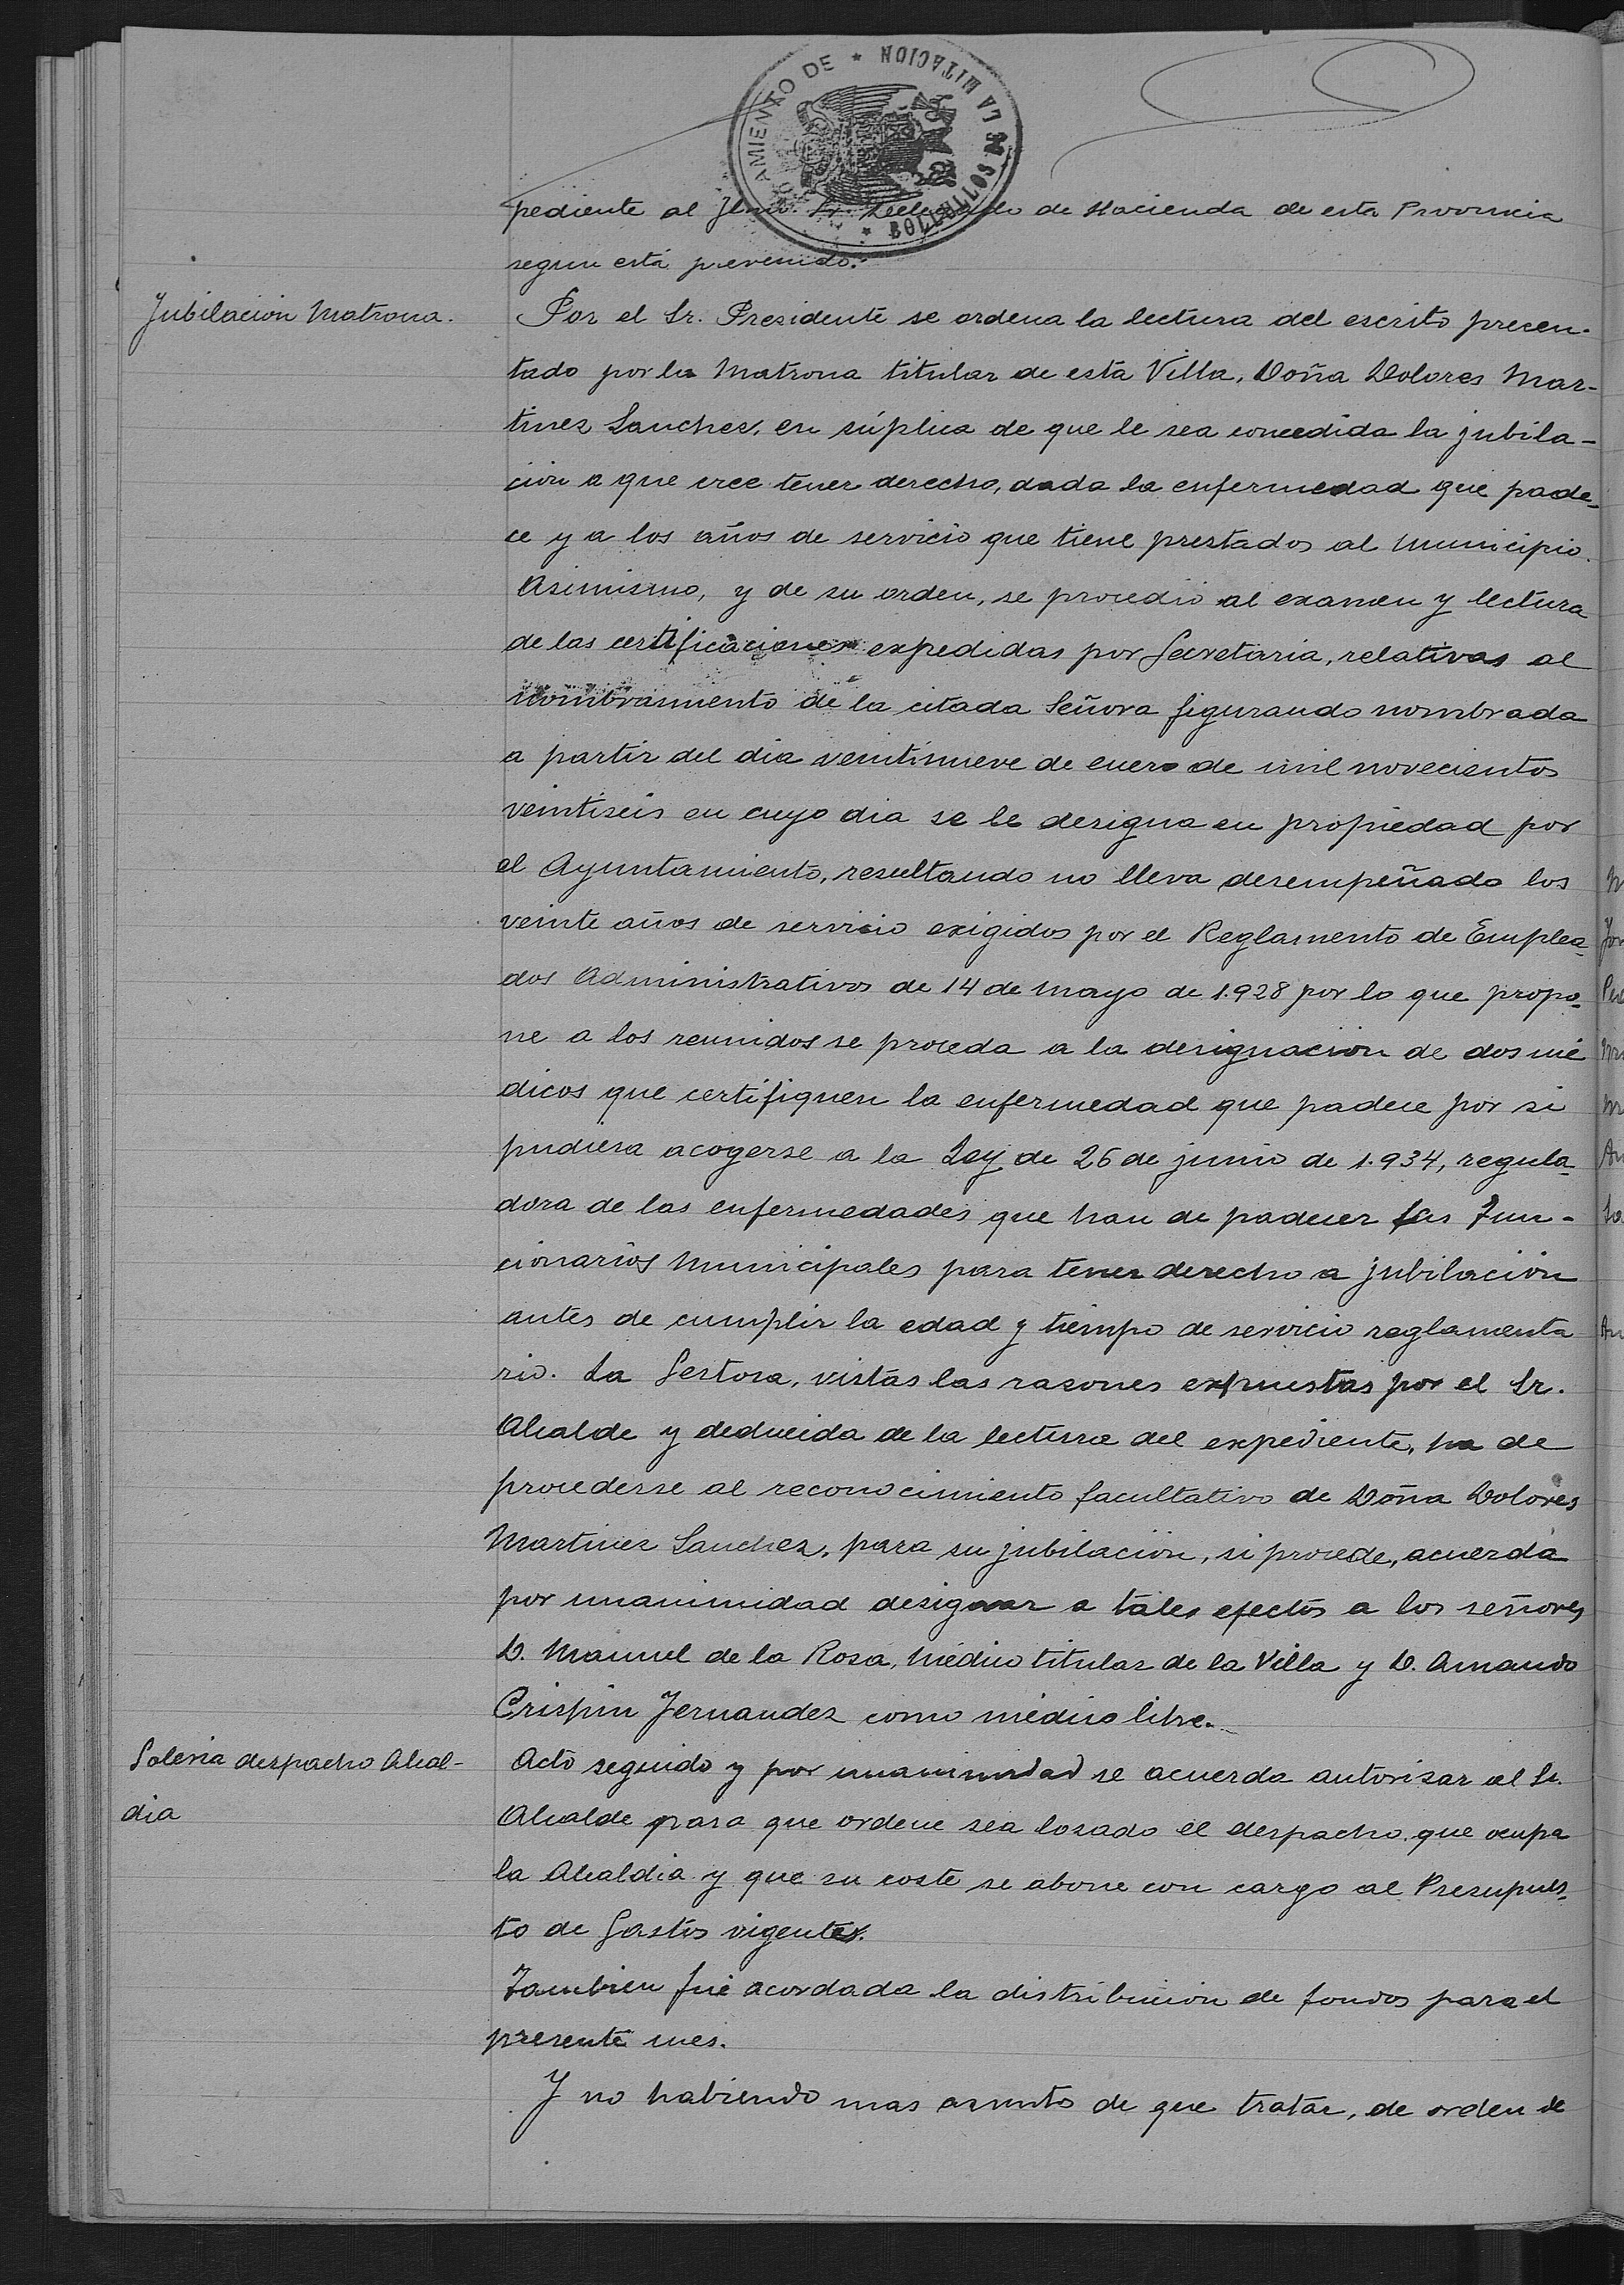 AYUNTAMIENTO DE * BOLLULLOS DE LA MITACION *
pediente al Ilmo. Sr. Delegado de Hacienda de esta Provincia
segun está prevenido.
Jubilación Matrona.
Por el Sr. Presidente se ordena la lectura del escrito presen-
tado por la Matrona titular de esta Villa, Doña Dolores Mar-
tinez Sanchez, en súplica de que le sea concedida la jubila-
cion a que cree tener derecho, dada la enfermedad que pade-
ce y a los años de servicio que tiene prestados al Municipio.
Asimismo, y de su orden, se procedió al examen y lectura
de las certificaciones expedidas por Secretaria, relativas al
nombramiento de la citada Señora figurando nombrada
a partir del dia veintinueve de enero de mil novecientos
veintiseis en cuyo dia se le designa en propiedad por
el Ayuntamiento, resultando no lleva desempeñado los
veinte años de servicio exigidos por el Reglamento de Emplea-
dos Administrativos de 14 de Mayo de 1.928 por lo que propo-
ne a los reunidos se proceda a la designación de dos mé
dicos que certifiquen la enfermedad que padece por si
pudiera acogerse a la Ley de 26 de junio de 1.934, regula-
dora de las enfermedades que han de padecer los Fun-
cionarios Municipales para tener derecho a jubilación
antes de cumplir la edad y tiempo de servicio reglamenta
rio. La Gestora, vistas las razones expuestas por el Sr.
Alcalde y deducida de la lectura del expediente, ha de
procederse al reconocimiento facultativo de Doña Dolores
Martinez Sanchez, para su jubilación, si procede, acuerda
por unanimidad designar a tales efectos a los señores
D. Manuel de la Rosa, Médico titular de la Villa y D. Amando
Crispin Fernandez como médico libre.
Soleria despacho Alcal-
dia
Acto seguido y por unanimidad se acuerda autorizar al Sr.
Alcalde para que ordene sea losado el despacho que ocupa
la Alcaldia y que su coste se abone con cargo al Presupues-
to de Gastos vigente.
Tambien fué acordada la distribución de fondos para el
presente mes.
Y no habiendo mas asuntos de que tratar, de orden de